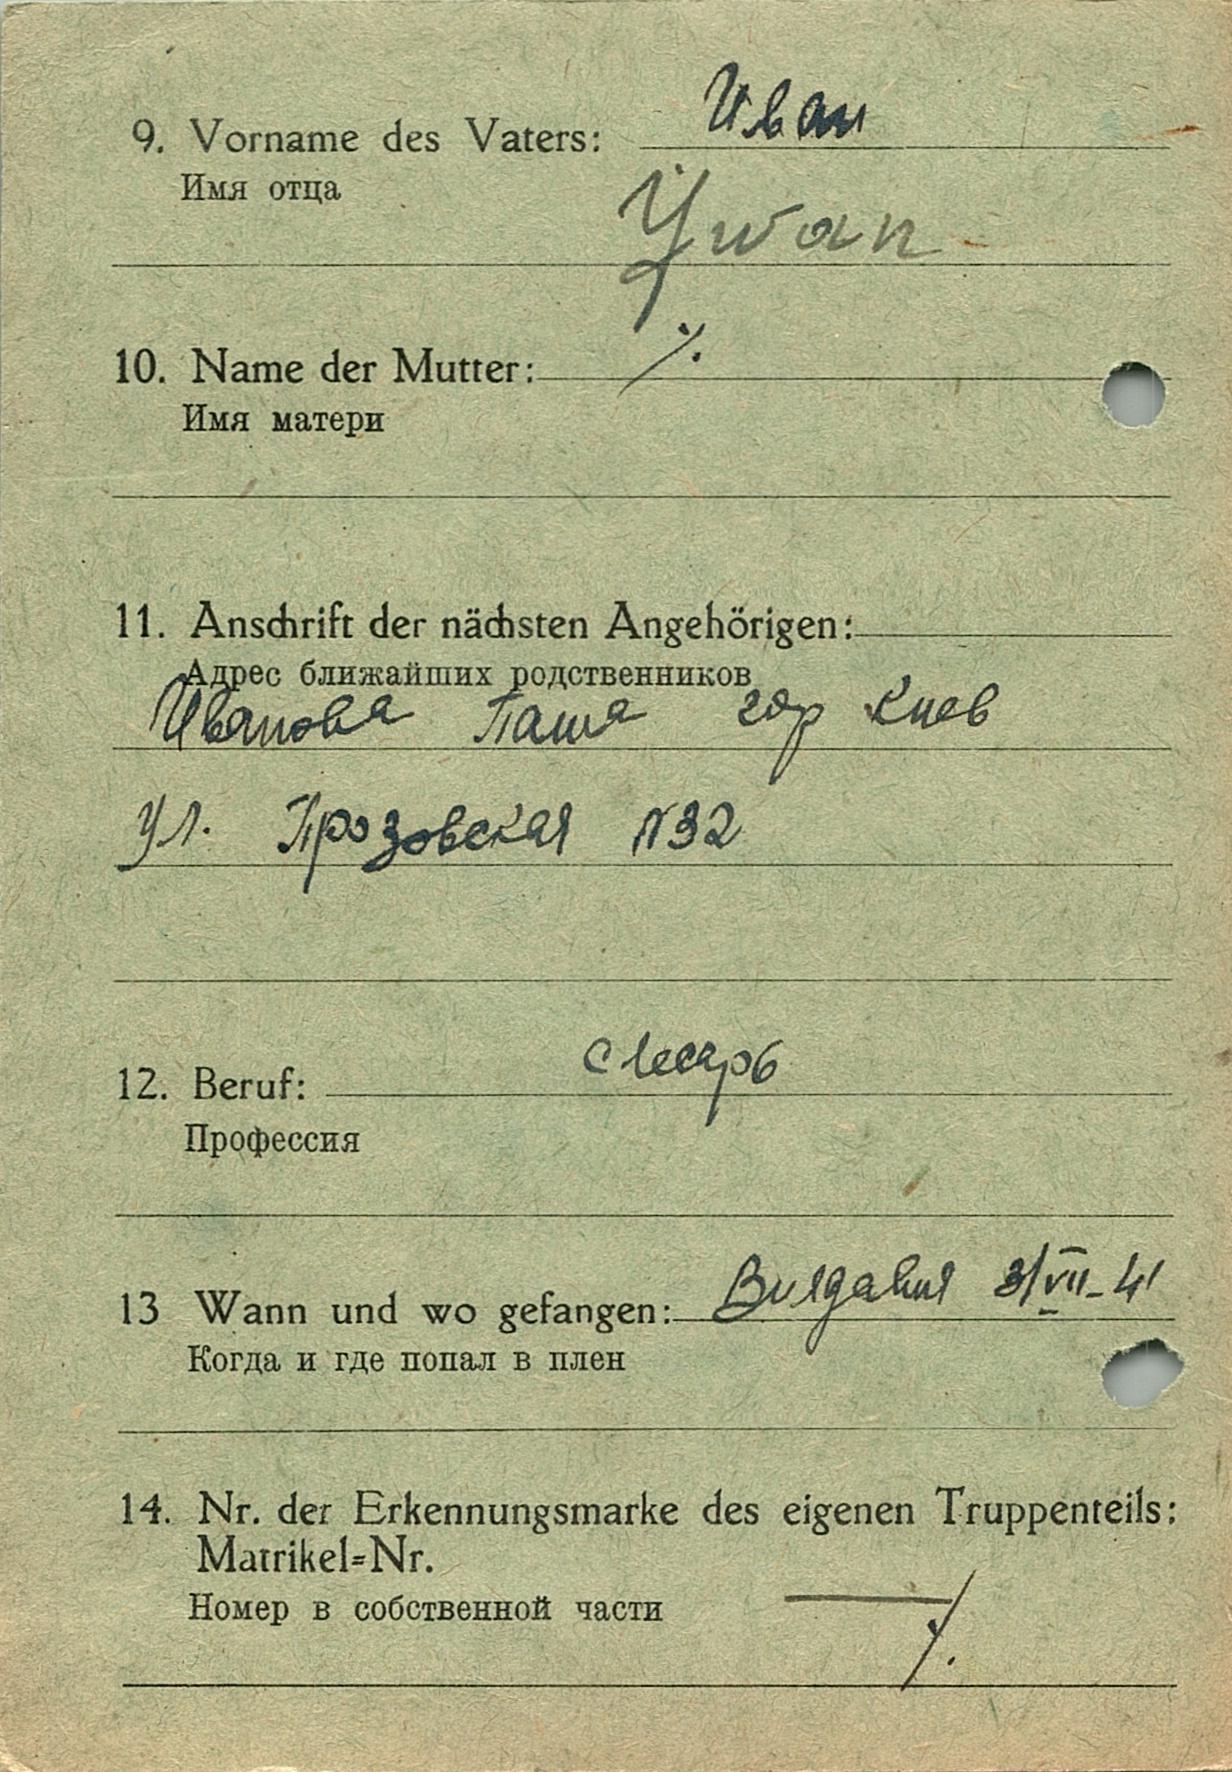 9. Vorname des Vaters: Иван
Имя отца
Iwan
10. Name der Mutter: ./.
Имя матери
11. Anschrift der nächsten Angehörigen:
Адрес ближайших родственников
Иванова Паша гор Киев
ул. Прозовская N32
12. Beruf: слесарь
Профессия
13 Wann und wo gefangen: 3/VII-41
Когда и где попал в плен
14. Nr. der Erkennungsmarke des eigenen Truppenteils:
Matrikel=Nr.
Номер в собственной части
— ./.